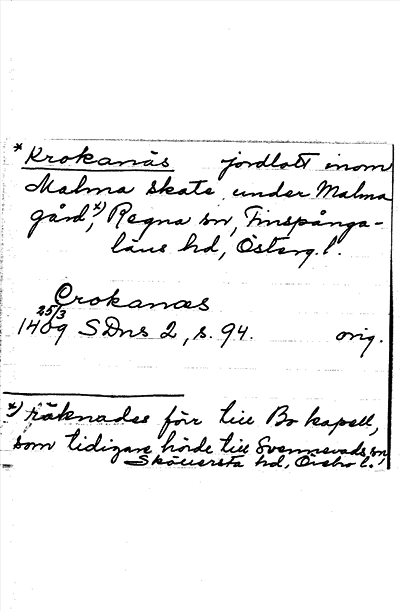 * Krokanäs jordlott inom
Malma skate under Malma
gård,*) Regna sn, Finspånga-
läns hd, Österg. l.
Crokanæs
25/3
1409 SDns 2, s. 94. orig.
*) räknades förr till Bo kapell,
som tidigare hörde till Svennevads sn,
Sköllersta hd, Örebro l.